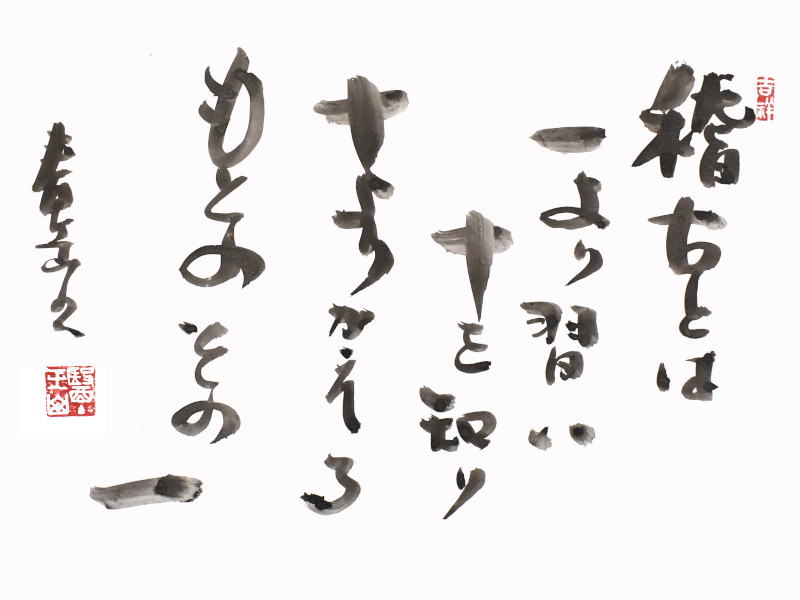 吉祥
稽古とは
一より習い
十を知り
十よりかえる
もとのその
一